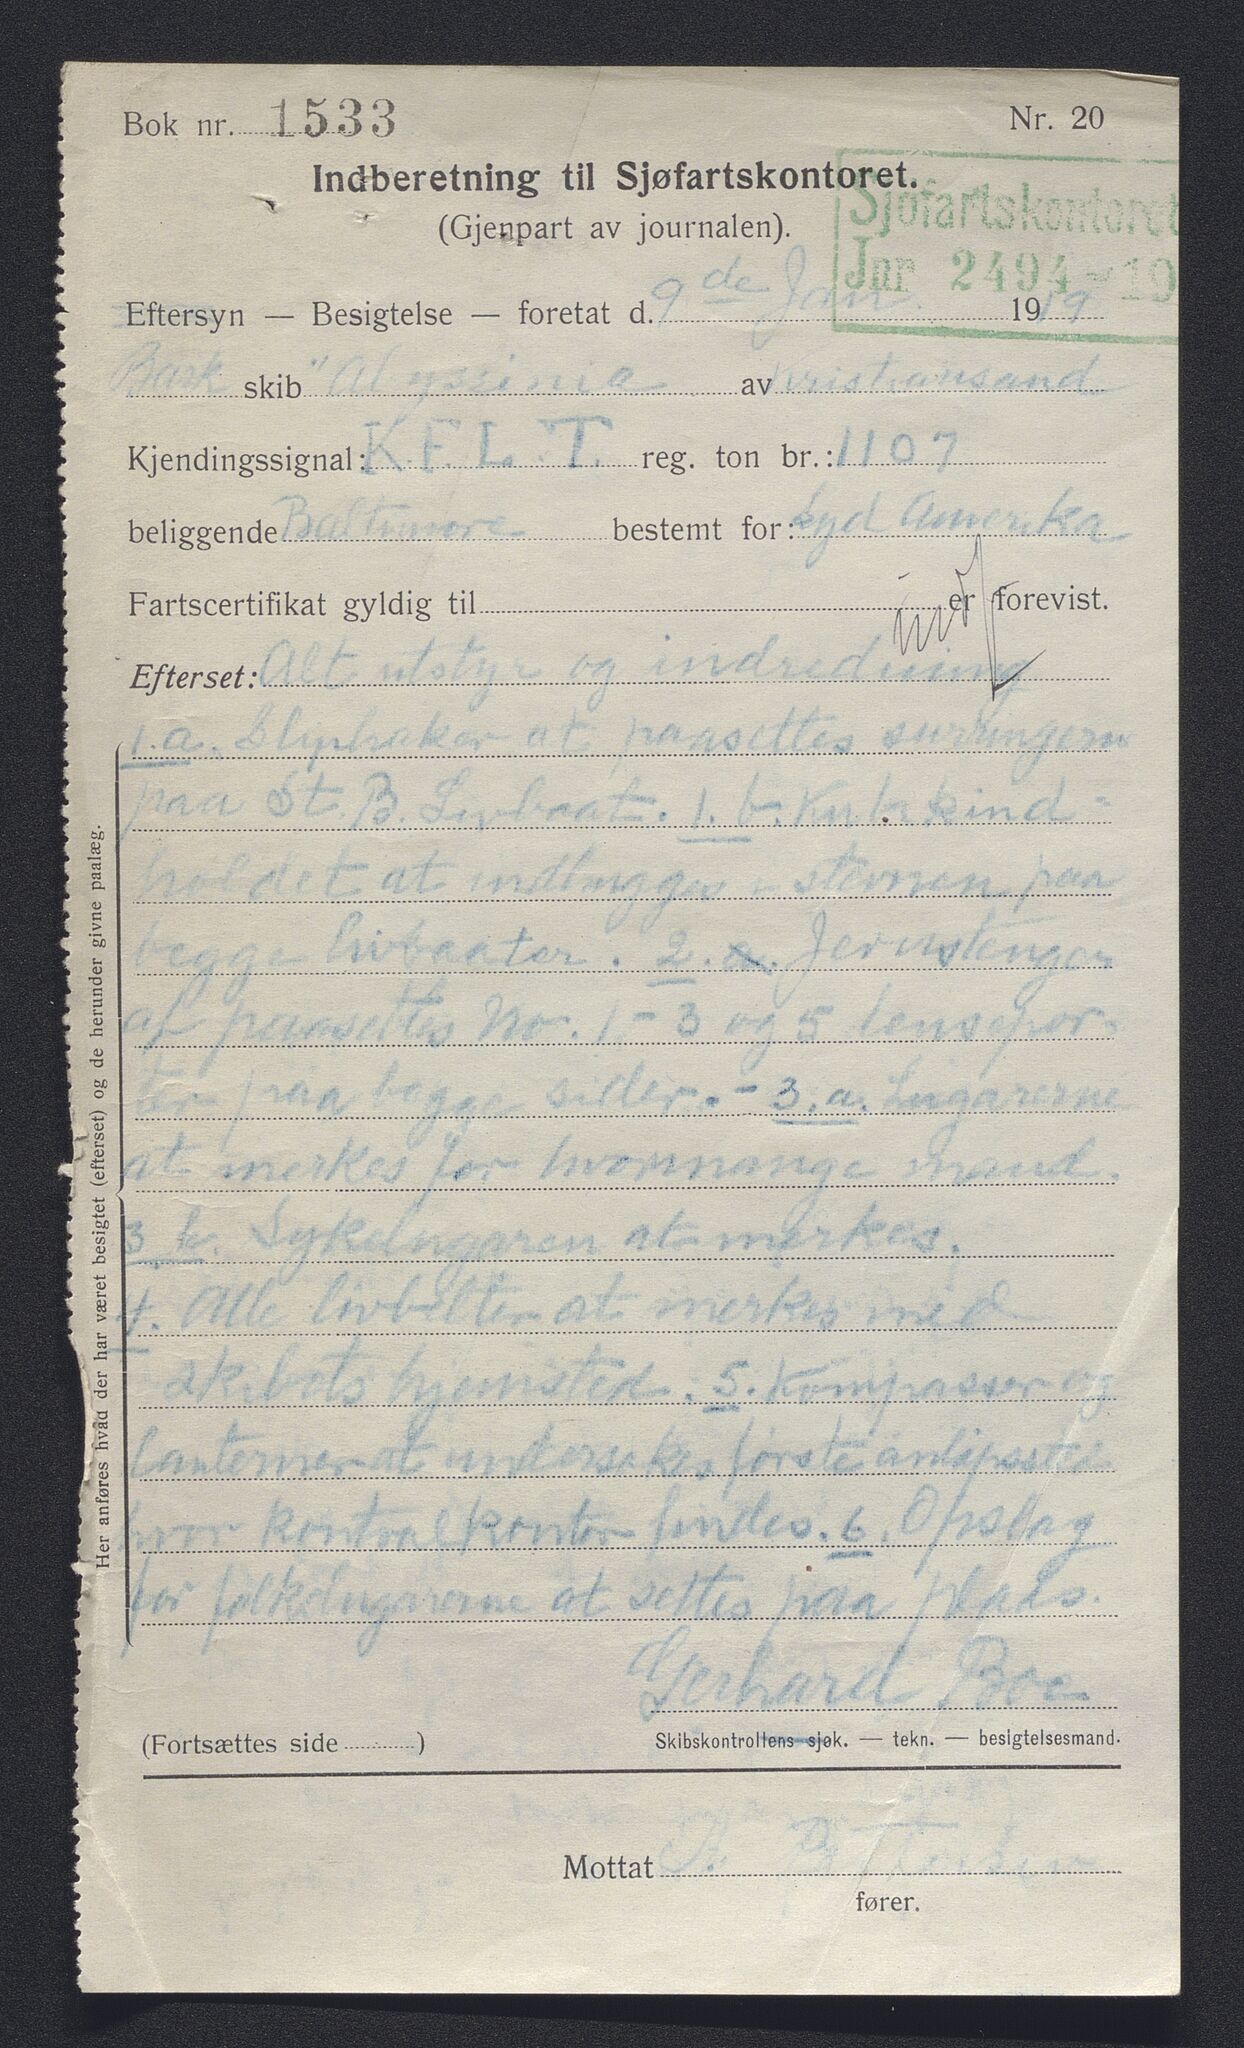 Bok nr. 1533
Nr. 20
Indberetning til Sjøfartskontoret.
(Gjenpart av journalen).
Sjøfartskontoret
Jnr 2494 - 19
Eftersyn — Besigtelse — foretat d. 9de Jan. 1919
Bark skib "Abyssinia av Kristiansand
Kjendingssignal: K.F.L.T. reg. ton br.: 1107
beliggende Baltimore bestemt for: Syd Amerika
Fartscertifikat gyldig til er forevist.
Efterset: Alt utstyr og indredning
1.a. Sliphaker at paasettes surringern
paa St. B. Livbaat. 1. b. Kubikind=
holdet at indhugges i stevnen paa
begge livbaater. 2. a. Jernstenger
at paasettes No. 1 - 3 og 5 lensepor-
ter paa begge sider. - 3.a. Lugarerne
at merkes for hvormange mand.
3 b. Sykelugaren at merkes.
4. Alle livbelter at merkes med
skibets hjemsted. 5. Kompasser og
lanterner at undersøkes første anløpssted
hvor kontrolkontor findes. 6. Opslag
for folkelugarerne at settes paa plads.
Gerhard Boe
(Fortsættes side )
Skibskontrollens sjøk. — tekn. — besigtelsesmand.
Mottat
fører.
Her anføres hvad der har været besigtet (efterset) og de herunder givne paalæg.